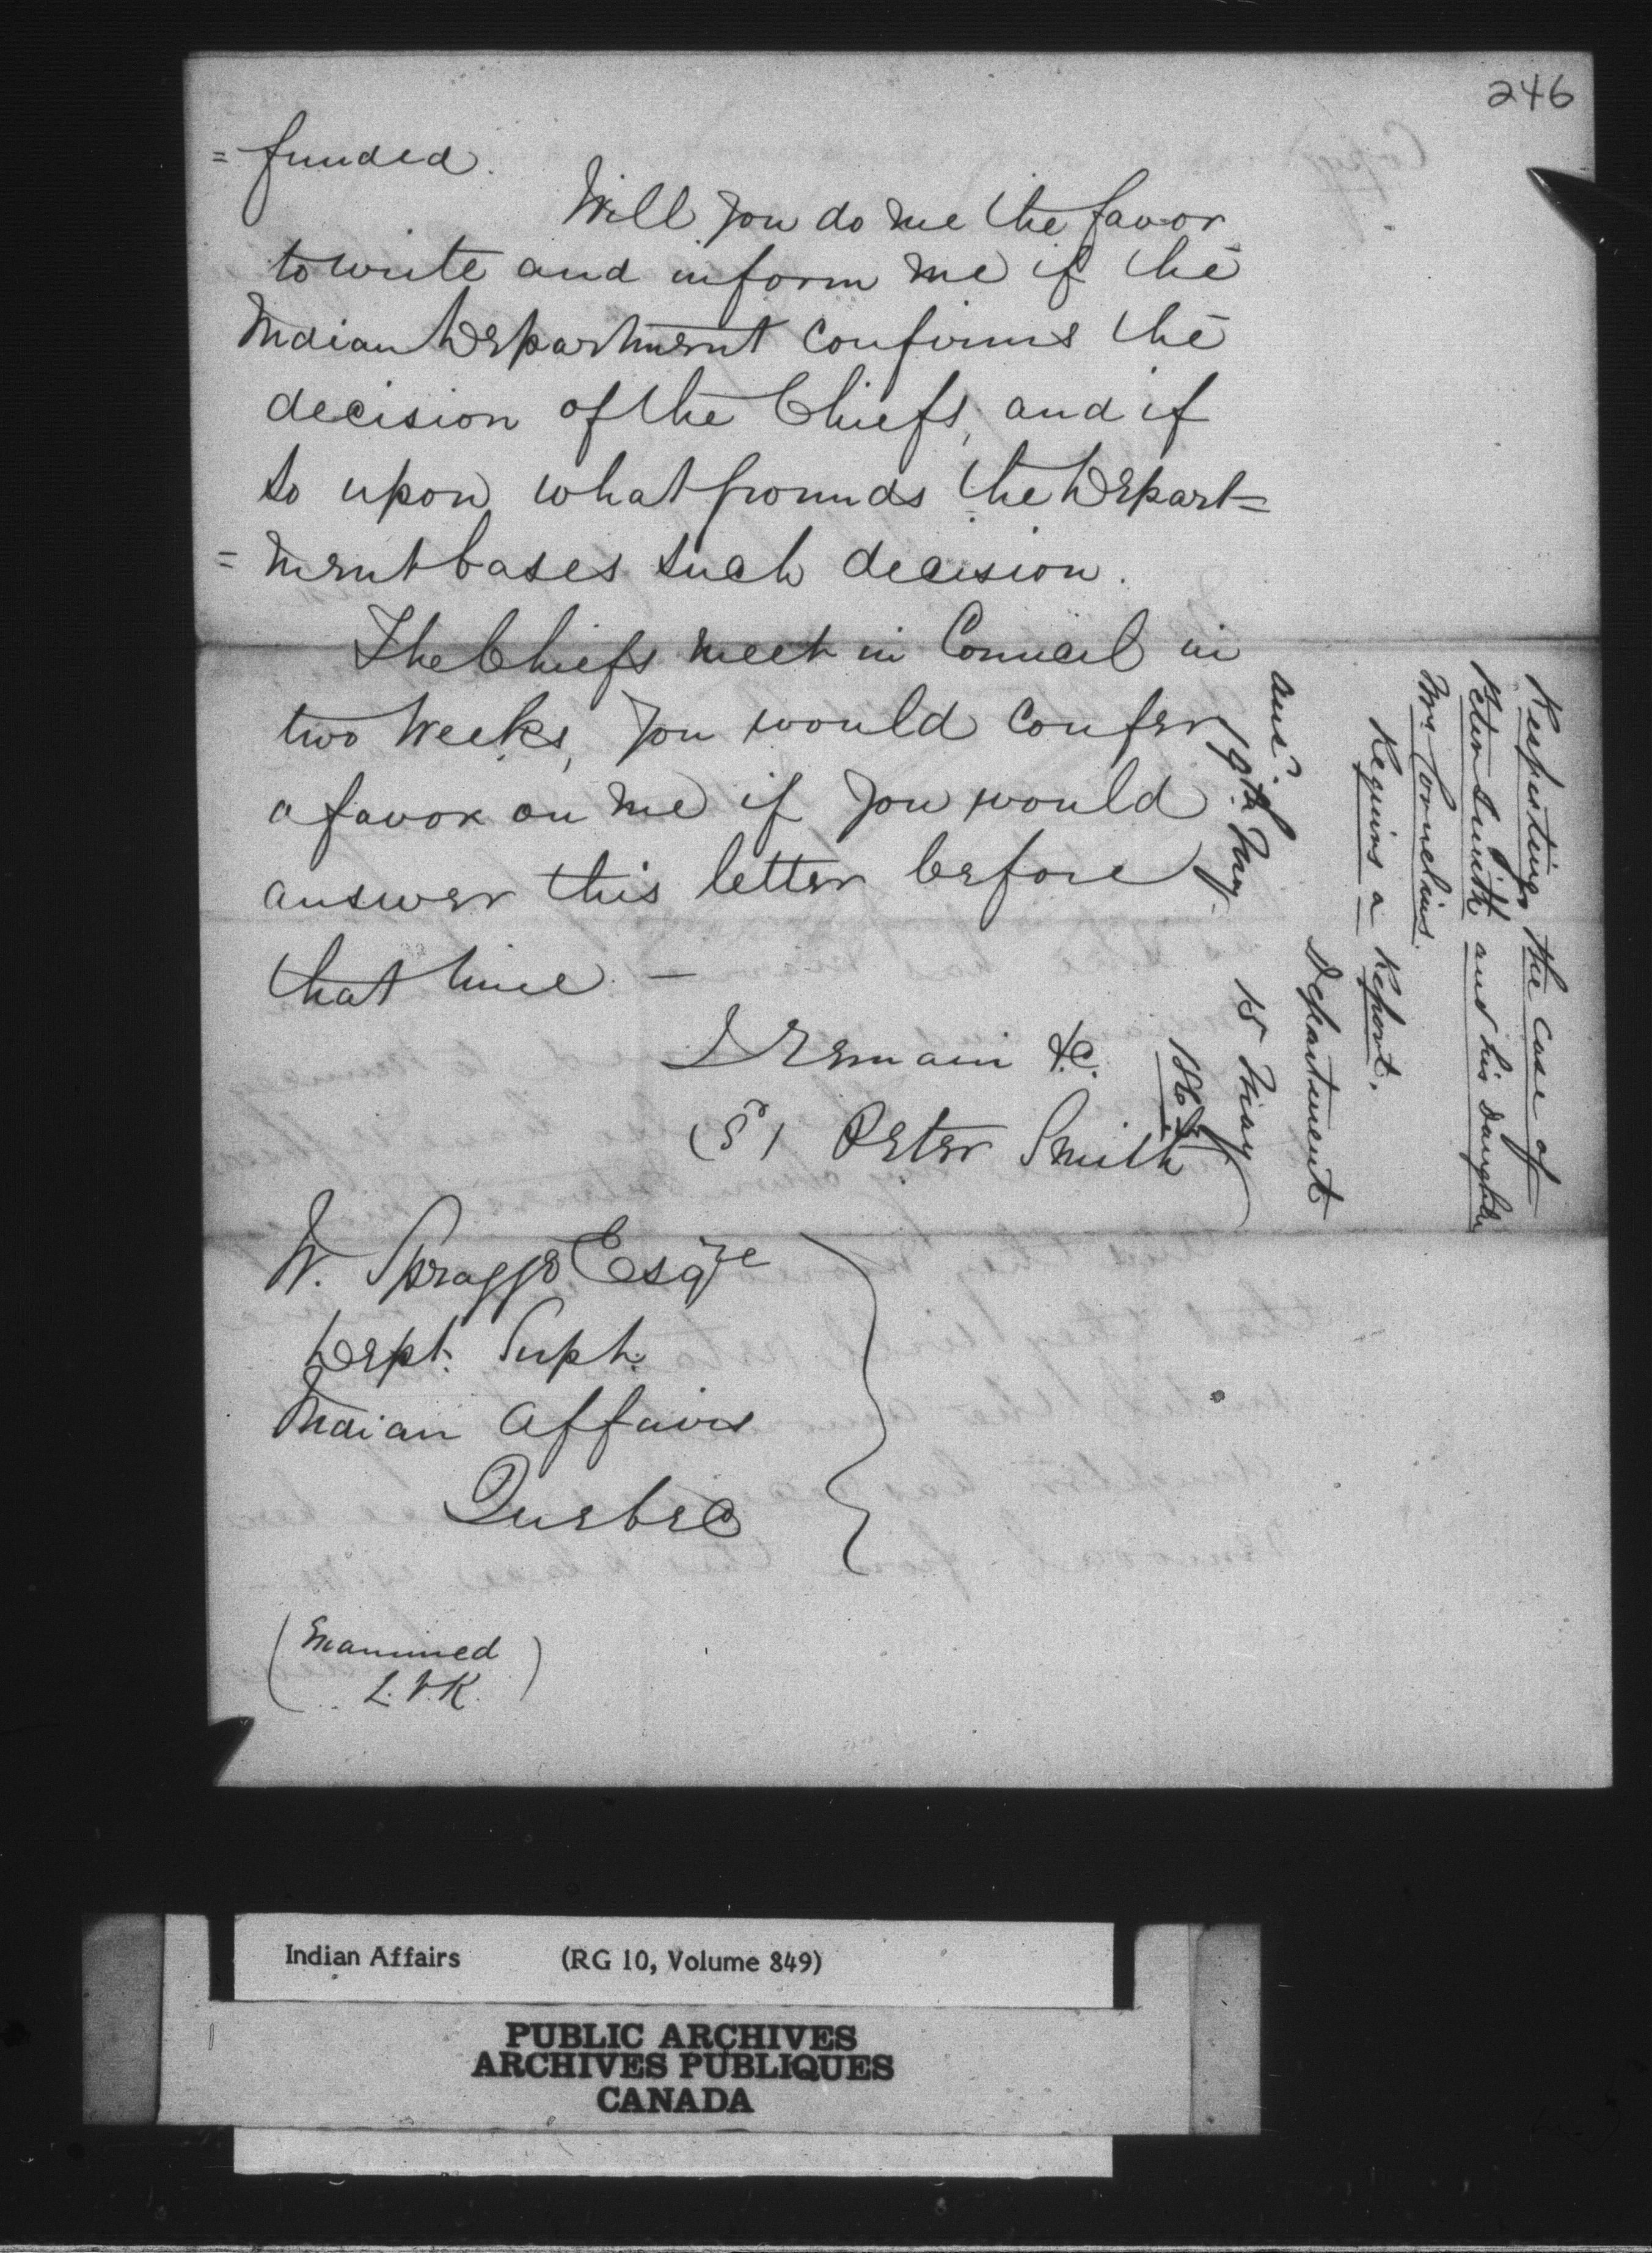 246
= funded.
Will you do me the favor
to write and inform me if the
Indian Department confirms the
decision of the Chiefs, and if
so upon what grounds the Depart=
= ment bases such decision.
The Chiefs meet in Council in
two weeks, you would confer
a favor on me if you would
answer this letter before
that time. —
I remain &c.
(S) Peter Smith
W. Spragge Esqre
Dept. Supt.
Indian Affairs
Quebec
(Examined
L.V.K.)
Respecting the case of
Peter Smith and his daughter
Mrs Cornelius.
Requires a Report.
Department
15 May
186
ansd.
19th May
Indian Affairs (RG 10, Volume 849)
PUBLIC ARCHIVES
ARCHIVES PUBLIQUES
CANADA